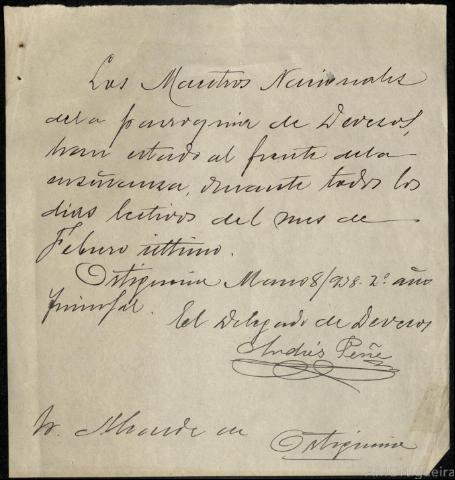 Los Maestros Nacionales
de la parroquia de Devesos,
han estado al frente de la
enseñanza, durante todos los
dias lectivos del mes de
Febrero último.
Ortigueira Marzo 8/938. 2º año
triunfal.
El Delegado de Devesos
Andrés Peña
Sr. Alcalde de Ortigueira